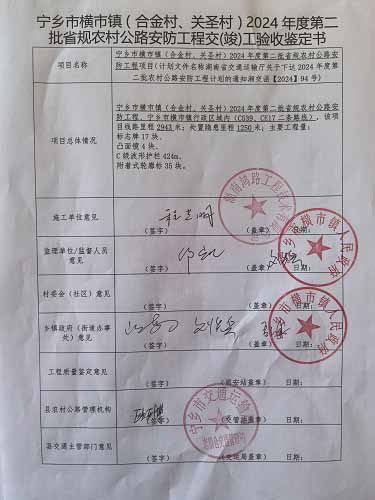 宁乡市横市镇（合金村、关圣村）2024 年度第二
批省规农村公路安防工程交(竣)工验收鉴定书
项目名称
宁乡市横市镇（合金村、关圣村）2024 年度第二批省规农村公路安
防工程项目(计划文件名称湖南省交通运输厅关于下达 2024 年度第
二批农村公路安防工程计划的通知湘交函【2024】94 号)
项目总体情况
宁乡市横市镇（合金村、关圣村）2024 年度第二批省规农村公路安
防工程，宁乡市横市镇行政区域内（C539、CE17 二条路线），该项
目线路里程 2943 米；处置隐患里程 1250 米；主要工程量：
标志牌 17 块、
凸面镜 4 块、
C 级波形护栏 424m、
附着式轮廓标 35 块。
施工单位意见
（签字） （盖章） 日期：
监理单位/监督人员
意见
（签字） （盖章） 日期：
宁乡市横市镇人民政府
村委会（社区）意见
（签字） （盖章） 日期：
乡镇政府（街道办事
处）意见
（签字） （盖章） 日期：
宁乡市横市镇人民政府
工程质量鉴定意见
（签字） （质安站盖章） 日期：
县农村公路管理机构
（签字） （交管站盖章） 日期：
宁乡市交通运输
县交通主管部门意见
（签字） （交运局盖章） 日期：